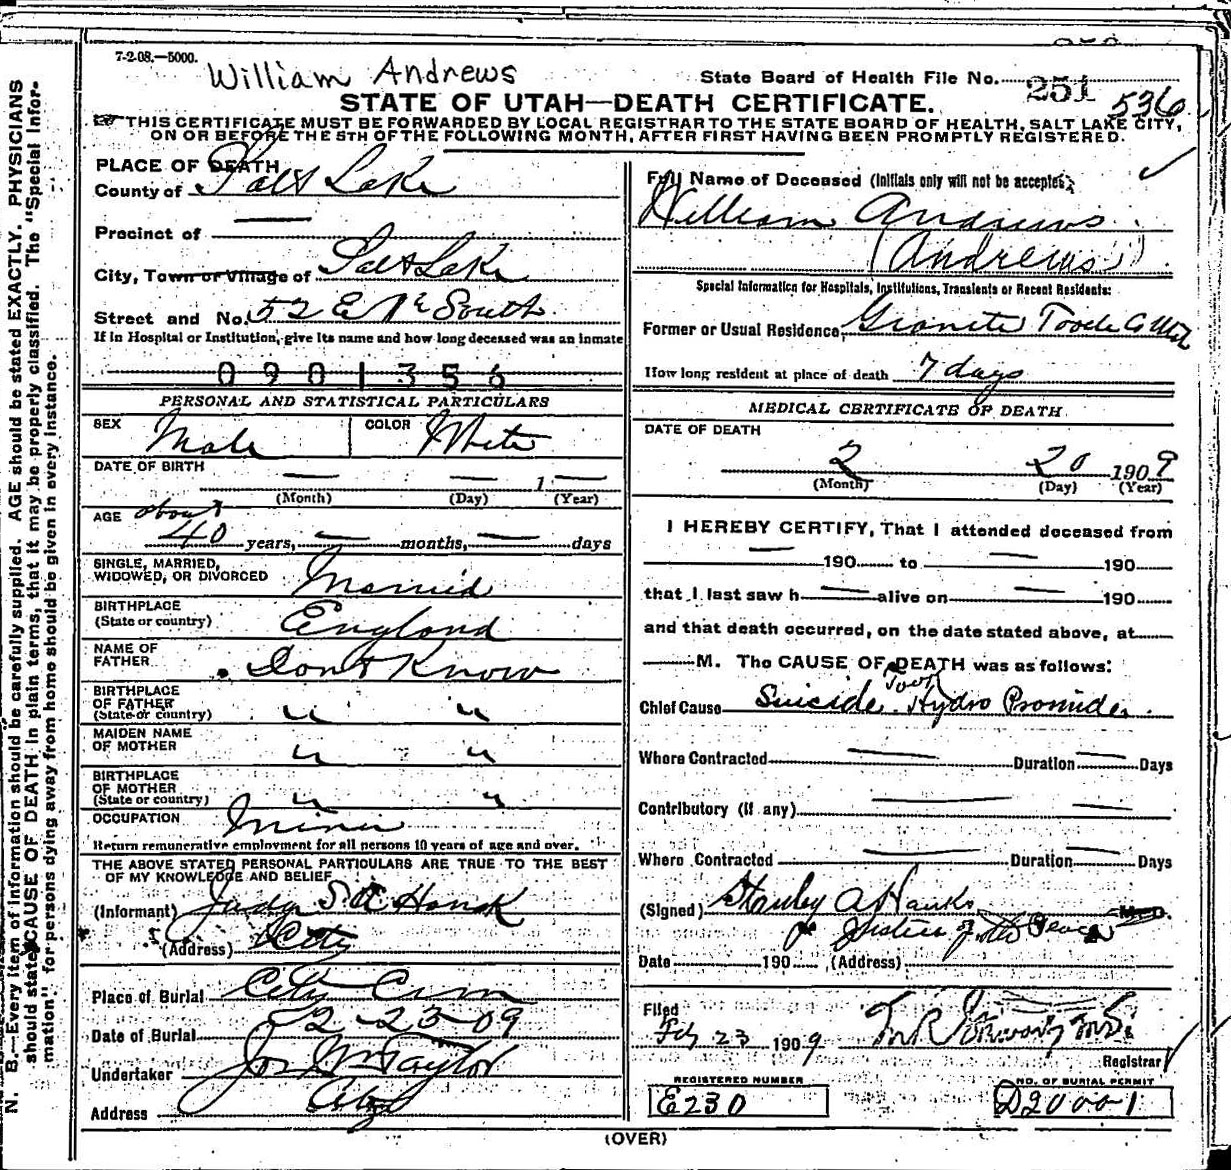 7-2-08.—5000.
William Andrews
State Board of Health File No. 251
536
STATE OF UTAH—DEATH CERTIFICATE.
THIS CERTIFICATE MUST BE FORWARDED BY LOCAL REGISTRAR TO THE STATE BOARD OF HEALTH, SALT LAKE CITY,
ON OR BEFORE THE 5TH OF THE FOLLOWING MONTH, AFTER FIRST HAVING BEEN PROMPTLY REGISTERED.
N. B.—Every item of information should be carefully supplied. AGE should be stated EXACTLY. PHYSICIANS
should state CAUSE OF DEATH in plain terms, that it may be properly classified. The "Special Infor-
mation" for persons dying away from home should be given in every instance.
PLACE OF DEATH
County of Salt Lake
Precinct of
City, Town or Village of Salt Lake
Street and No. 52 E South
If in Hospital or Institution, give its name and how long deceased was an inmate
0901356
PERSONAL AND STATISTICAL PARTICULARS
SEX Male
COLOR White
DATE OF BIRTH — — 1 —
(Month) (Day) (Year)
AGE about
40 years, — months, — days
SINGLE, MARRIED,
WIDOWED, OR DIVORCED Married
BIRTHPLACE
(State or country) England
NAME OF
FATHER Don't Know
BIRTHPLACE
OF FATHER
(State or country) " "
MAIDEN NAME
OF MOTHER " "
BIRTHPLACE
OF MOTHER
(State or country) " "
OCCUPATION Miner
Return remunerative employment for all persons 10 years of age and over.
THE ABOVE STATED PERSONAL PARTICULARS ARE TRUE TO THE BEST
OF MY KNOWLEDGE AND BELIEF
(Informant) Judge S. A. Hank
(Address) City
Place of Burial City Cem
Date of Burial 2-23-09
Undertaker Jos Wm Taylor
Address City
Full Name of Deceased (Initials only will not be accepted)
William Andrews
(Andrews)
Special Information for Hospitals, Institutions, Transients or Recent Residents:
Former or Usual Residence, Granite Tooele Co Utah
How long resident at place of death 7 days
MEDICAL CERTIFICATE OF DEATH
DATE OF DEATH
2 20 1909
(Month) (Day) (Year)
I HEREBY CERTIFY, That I attended deceased from
— 190 to — 190
that I last saw h— alive on — 190
and that death occurred, on the date stated above, at
—M. The CAUSE OF DEATH was as follows:
Chief Cause Suicide. Took Hydro Bromide.
Where Contracted — Duration — Days
Contributory (if any) — —
Where Contracted — Duration — Days
(Signed) Stanley A Hanks M.D.
Justice of the Peace
Date 190 (Address)
Filed
Feb 23 1909
Registrar
REGISTERED NUMBER
E230
NO. OF BURIAL PERMIT
D20001
(OVER)